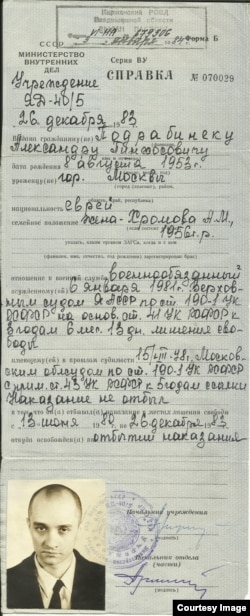 Форма Б
СССР
МИНИСТЕРСТВО
ВНУТРЕННИХ
ДЕЛ
Серия ВУ
СПРАВКА
№ 070029
Учреждение
ЯД-40/5
26 декабря 1983
Выдана гражданину(ке) Подрабинеку
Александру Пинхосовичу
дата рождения 8 августа 1953 г.
уроженцу(ке) гор. Москвы
национальность еврей
семейное положение жена-Хромова А.М.,
1956 г.р.
отношение к военной службе военнообязанный
6 января 1981 г. Верхов-
ным судом ЯАССР по ст. 190-1 УК
РСФСР на основ. ст. 41 УК РСФСР к
3 годам 6 мес. 13 дн. лишения сво-
боды
имевшему(ей) в прошлом судимости 15/VIII-78г. Москов-
ским облсудом по ст. 190-1 УК РСФСР
с прим. ст. 43 УК РСФСР к 5 годам ссылки
Наказание не отбыл
в том что он(а) отбывал(а) наказание в местах лишения свободы
с 13 июня 1980 по 26 декабря 1983
откуда освобожден(а) по отбытии наказания
Начальник учреждения
(подпись)
Начальник отдела
(части)
(подпись)
Courtesy Image